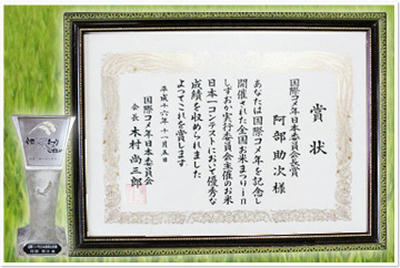 賞状
国際コメ年日本委員会賞
阿部助次様
あなたは国際コメ年を記念し
開催された全国お米まつりin
しずおか実行委員会主催のお米
日本一コンテストにおいて優秀な
成績を収められました
よってこれを賞します
平成十六年十一月五日
国際コメ年日本委員会
会長 木村尚三郎